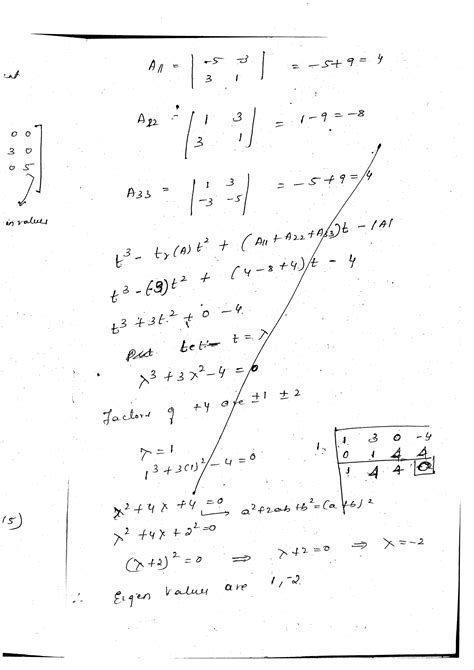 A11 = | -5 -3 | = -5+9 = 4
| 3 1 |
A22 = | 1 3 | = 1-9 = -8
| 3 1 |
0 0
3 0
0 5
A33 = | 1 3 | = -5+9 = 4
| -3 -5 |
in values
t³ - tr(A) t² + (A11 + A22 + A33)t - |A|
t³ - (-3)t² + (4-8+4)t - 4
t³ + 3t² + 0 - 4
Put let t = λ
λ³ + 3λ² - 4 = 0
Factors of +4 are ±1 ±2
λ = 1
1³ + 3(1)² - 4 = 0
1. | 1 3 0 -4
0 1 4 4
1 4 4 0
λ² + 4λ + 4 = 0 → a²+2ab+b² = (a+b)²
15)
λ² + 4λ + 2² = 0
(λ+2)² = 0 ⇒ λ+2 = 0 ⇒ λ = -2
∴ Eigen values are 1, -2